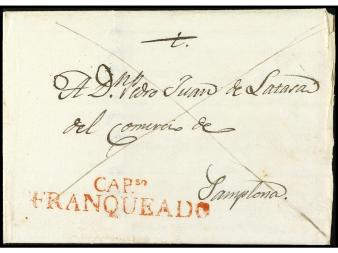 t.
A Dn. Pedro Juan de Latasa
del comercio de
Pamplona.
CAPsn
FRANQUEADO